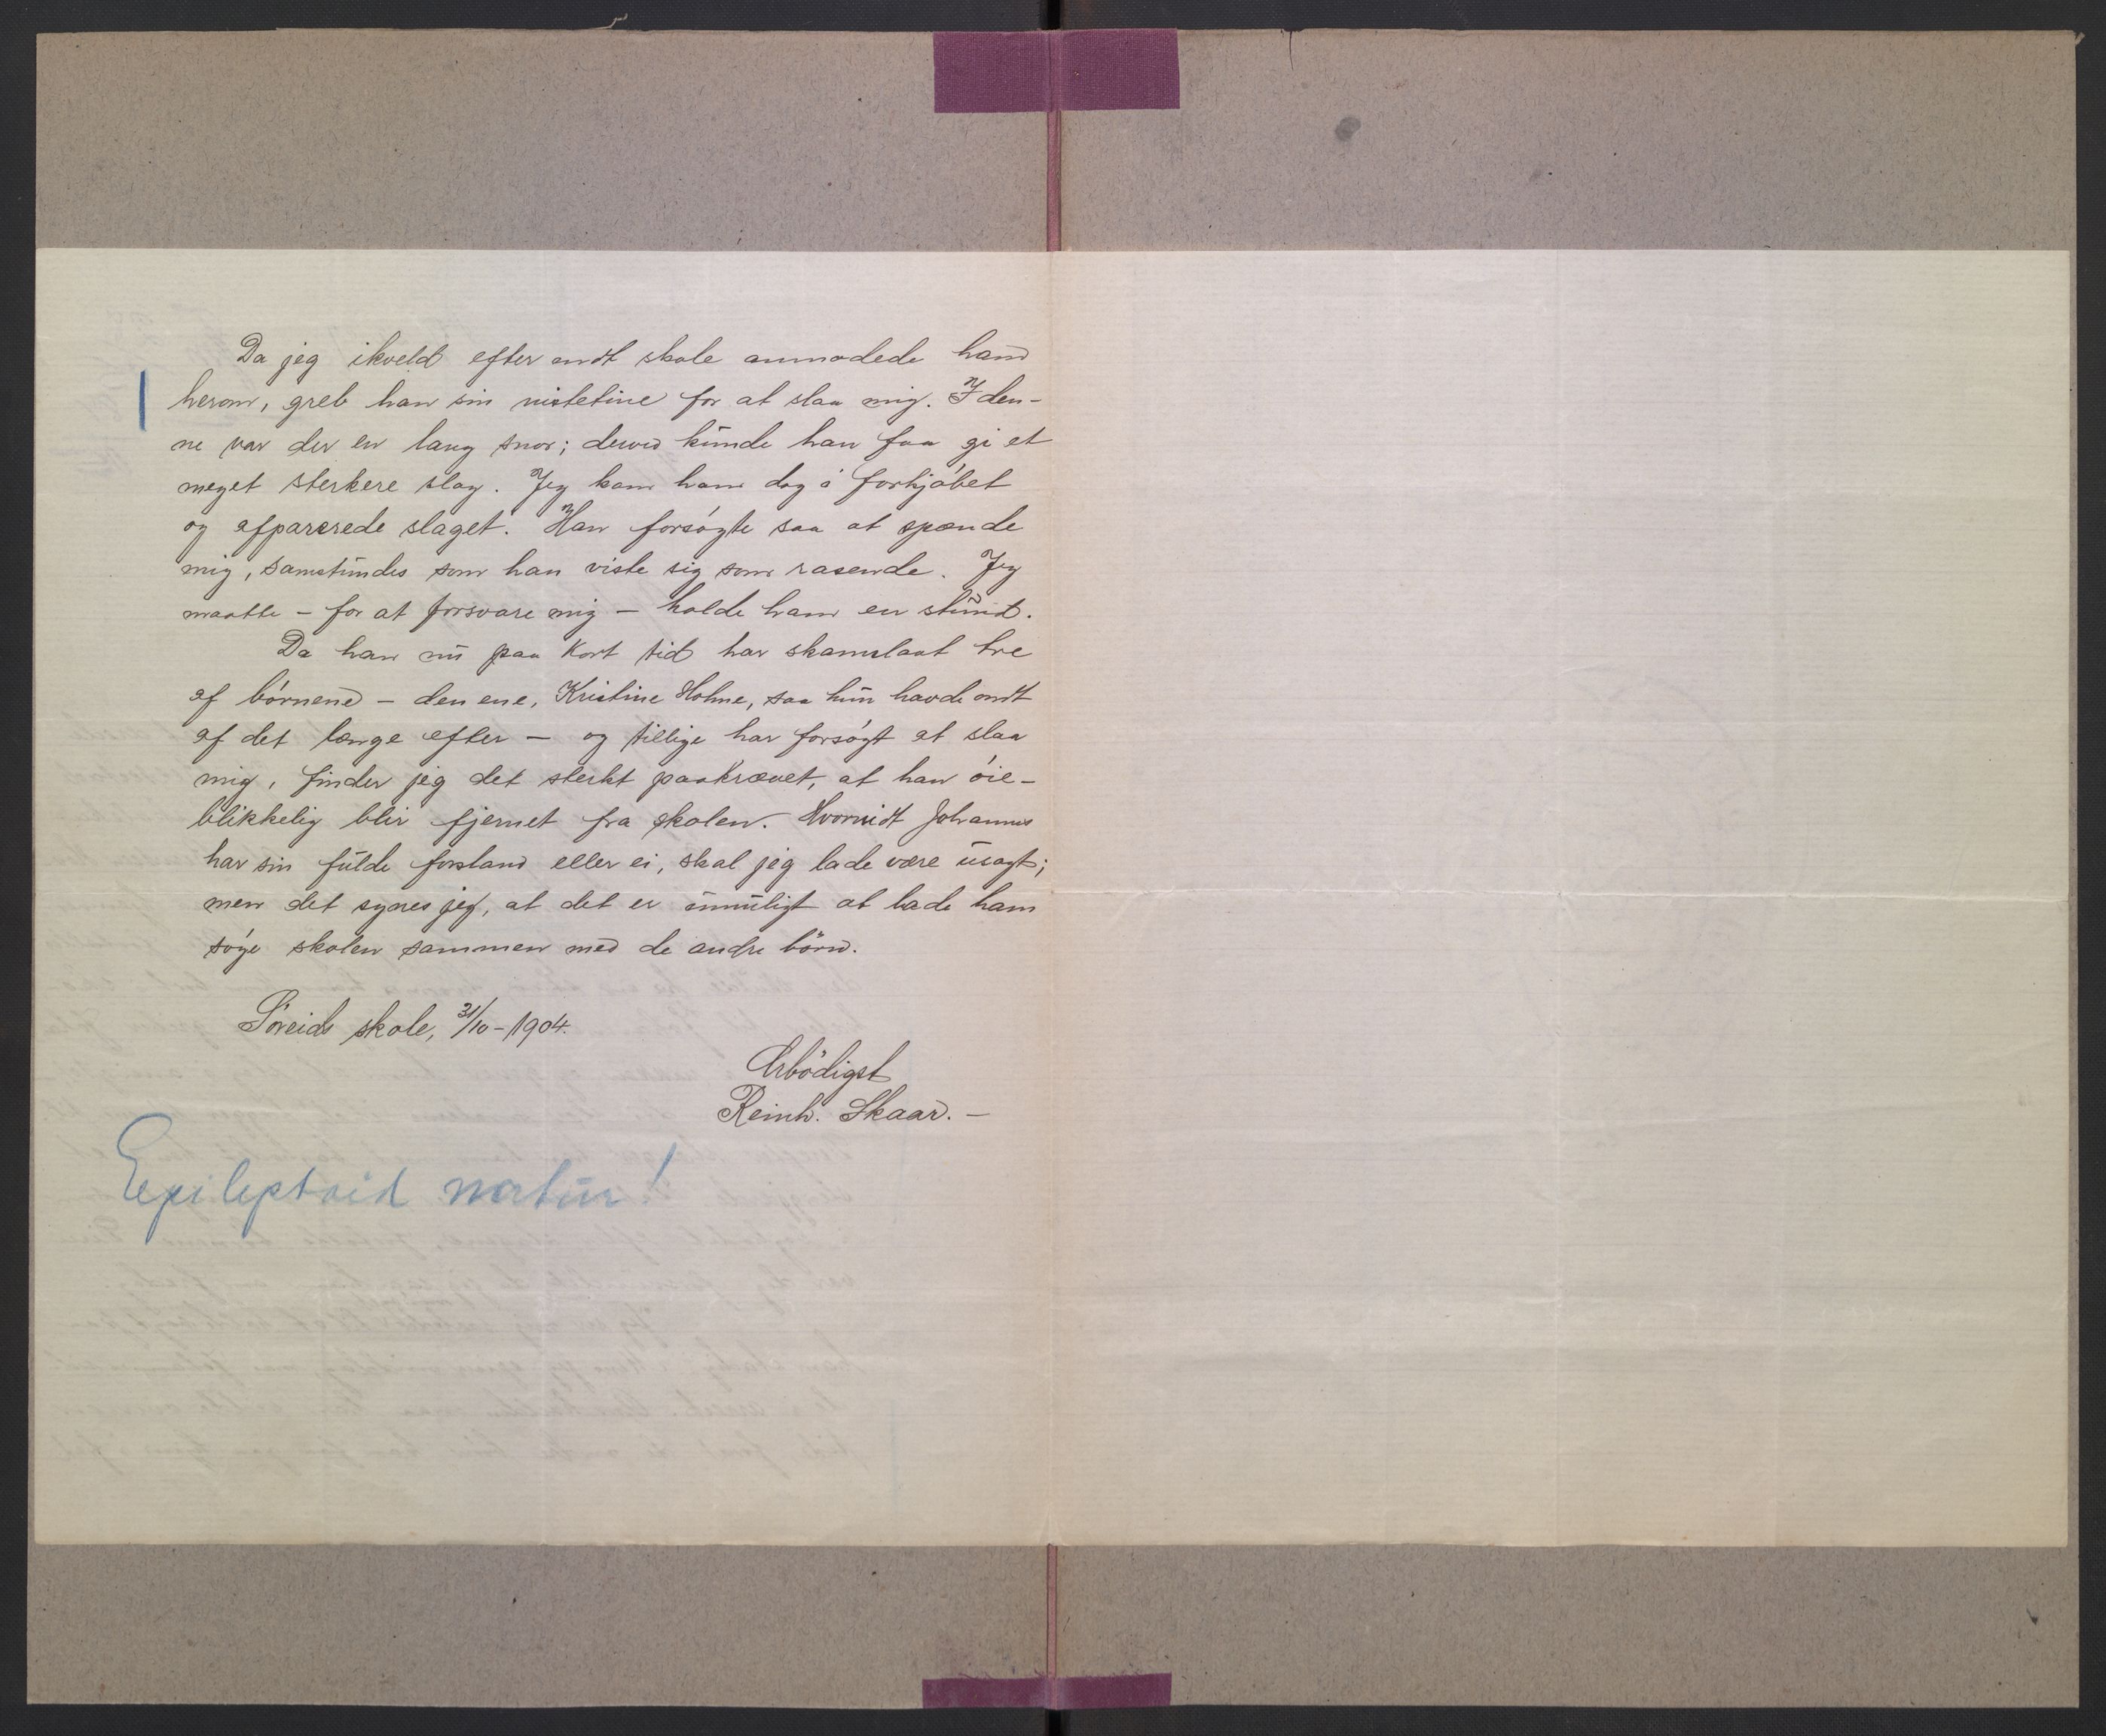 Da jeg ikveld efter endt skole anmodede ham
herom, greb han sin nistetine for at slaa mig. I den-
ne var der en lang snor; derved kunde han faa gi et
meget sterkere slag. Jeg kom ham dog i forkjøbet
og afparerede slaget. Han forsøgte saa at spænde
mig, samstundes som han viste sig som rasende. Jeg
maatte - for at forsvare mig - holde ham en stund.
Da han nu paa kort tid har skamslaat tre
af børnene - den ene, Kristine Holme, saa hun havde ondt
af det længe efter - og tillige har forsøgt at slaa
mig, finder jeg det sterkt paakrævet, at han øie-
blikkelig blir fjernet fra skolen. Hvorvidt Johannes
har sin fulde forstand eller ei, skal jeg lade være usagt;
men det synes jeg, at det er umuligt at lade ham
søge skolen sammen med de andre børn.
Søreide skole, 31/10-1904.
Ærbødigst
Reinh. Skaar. -
Epileptoid natur!